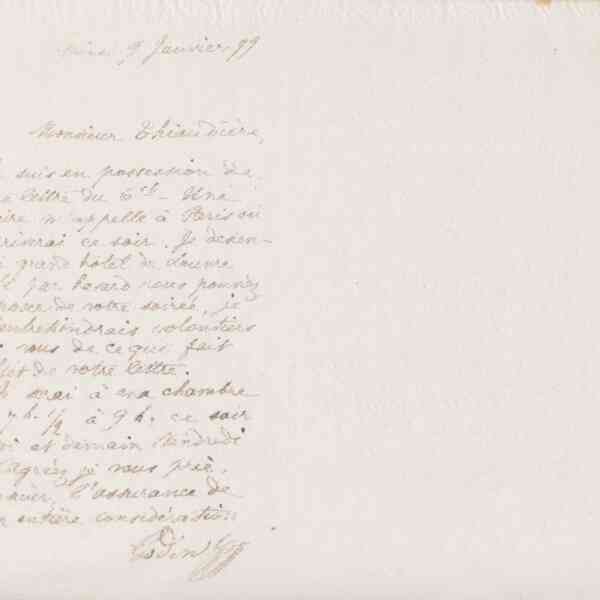 9 Janvier 79
Monsieur Thiaudière,
suis en possession de
lettre du 6 ct – Une
aire m'appelle à Paris où
rriverai ce soir. Je descen-
grand hôtel du Louvre
par hasard vous pouviez
poser de votre soirée, je
entretiendrais volontiers
vous de ce que fait
jet de votre lettre.
serai à ma chambre
7 h. 1/2 à 9 h. ce soir
di et demain vendredi
agréez je vous prie,
l'assurance de
entière considération
Godin